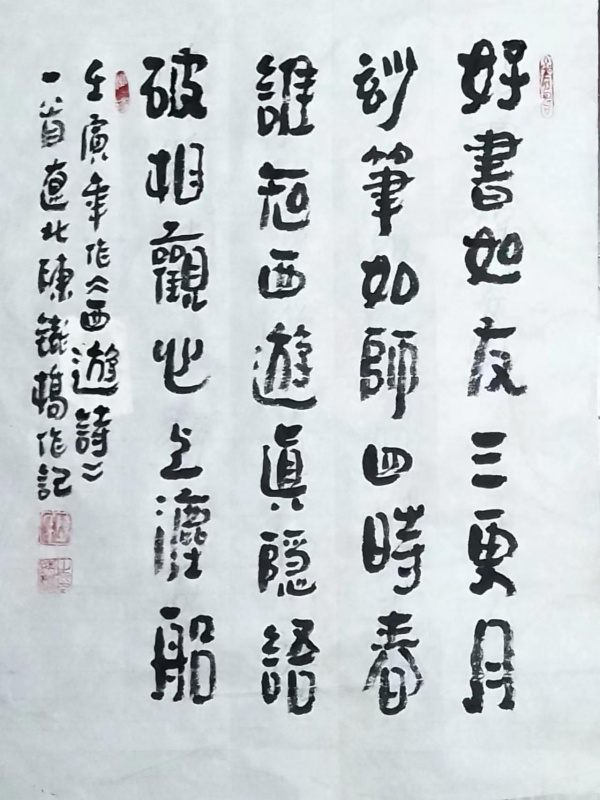 好書如友三更月
妙筆如師四時春
誰知西遊真隱語
破相觀心上瀍船
壬寅年作《西遊詩》
一首遼北陳鐵揚作記